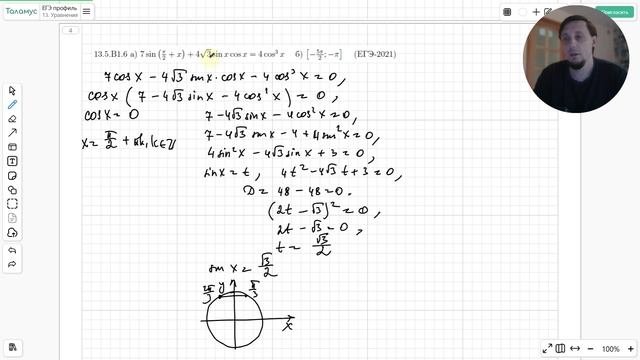 Таламус
ЕГЭ профиль
13. Уравнения
Пригласить
4
13.5.B1.6 а) 7 sin (π/2 + x) + 4√3 sin x cos x = 4 cos³ x б) [−5π/2; −π] (ЕГЭ-2021)
7cosx − 4√3 sinx·cosx − 4cos³x = 0,
cosx (7 − 4√3 sinx − 4cos²x) = 0,
cosx = 0 7 − 4√3 sinx − 4cos²x = 0,
x = π/2 + πk, k∈ℤ 7 − 4√3 sinx − 4 + 4sin²x = 0,
4sin²x − 4√3 sinx + 3 = 0,
sinx = t, 4t² − 4√3 t + 3 = 0,
D = 48 − 48 = 0.
(2t − √3)² = 0,
2t − √3 = 0,
t = √3/2
sin x = √3/2
2π/3 y π/3
x
100%